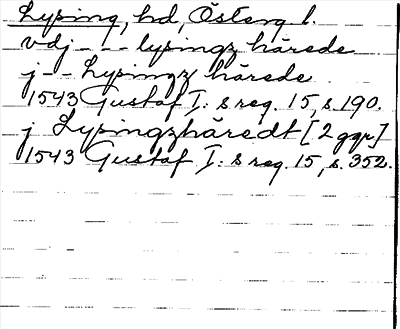 Lysing, hd, Österg l.
vdj - - - lysingz härede
j - - Lysingz härede
1543 Gustaf I:s reg. 15, s. 190.
j Lysingzhäredt [2 ggr]
1543 Gustaf I:s reg. 15, s. 352.